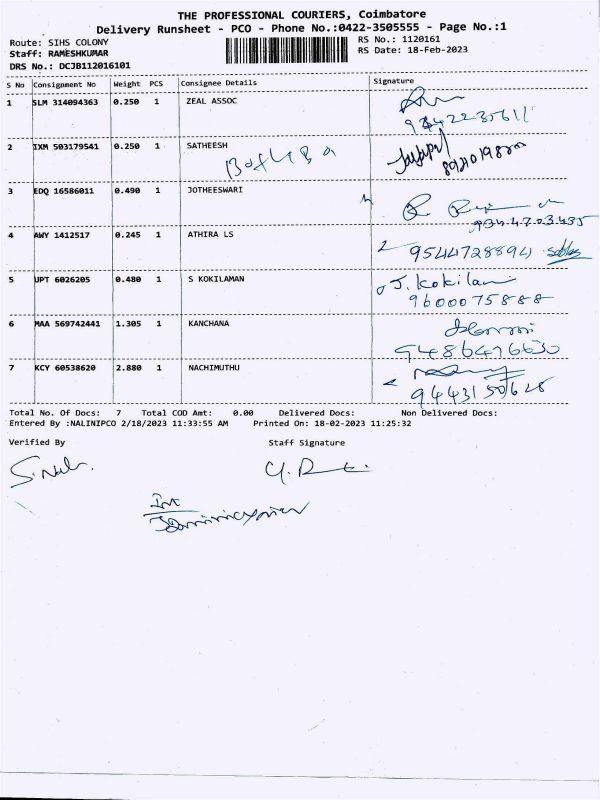 THE PROFESSIONAL COURIERS, Coimbatore
Delivery Runsheet - PCO - Phone No.:0422-3505555 - Page No.:1
Route: SIHS COLONY RS No.: 1120161
Staff: RAMESHKUMAR RS Date: 18-Feb-2023
DRS No.: DCJB112016101
S No Consignment No Weight PCS Consignee Details Signature
1 SLM 314094363 0.250 1 ZEAL ASSOC
2 IXM 503179541 0.250 1 SATHEESH
3 EDQ 16586011 0.490 1 JOTHEESWARI
4 AWY 1412517 0.245 1 ATHIRA LS
9544728894
5 UPT 6026205 0.480 1 S KOKILAMAN J. Kokilam
9600075888
6 MAA 569742441 1.305 1 KANCHANA
9486476630
7 KCY 60538620 2.880 1 NACHIMUTHU
9443150628
Total No. Of Docs: 7 Total COD Amt: 0.00 Delivered Docs: Non Delivered Docs:
Entered By :NALINIPCO 2/18/2023 11:33:55 AM Printed On: 18-02-2023 11:25:32
Verified By Staff Signature